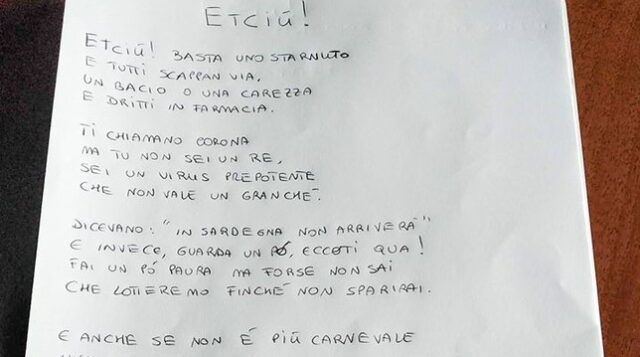 ETCIÚ!
ETCIÚ! BASTA UNO STARNUTO
E TUTTI SCAPPAN VIA,
UN BACIO O UNA CAREZZA
E DRITTI IN FARMACIA.
TI CHIAMANO CORONA
MA TU NON SEI UN RE,
SEI UN VIRUS PREPOTENTE
CHE NON VALE UN GRANCHÉ.
DICEVANO: "IN SARDEGNA NON ARRIVERÀ"
E INVECE, GUARDA UN PÓ, ECCOTI QUA!
FAI UN PÓ PAURA MA FORSE NON SAI
CHE LOTTEREMO FINCHÉ NON SPARIRAI.
E ANCHE SE NON É PIÚ CARNEVALE